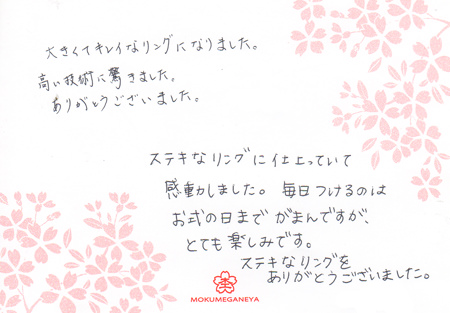 大きくてキレイなリングになりました。
高い技術に驚きました。
ありがとうございました。
ステキなリングに仕上っていて
感動しました。毎日つけるのは
お式の日までがまんですが、
とても楽しみです。
ステキなリングを
ありがとうございました。
MOKUMEGANEYA